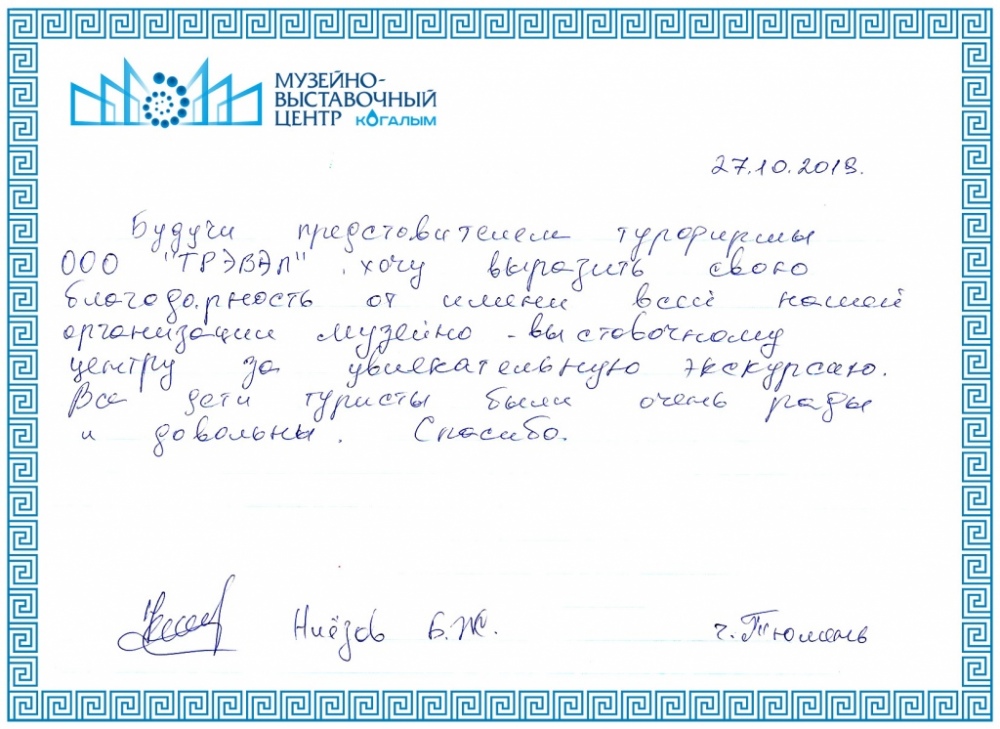 МУЗЕЙНО-
ВЫСТАВОЧНЫЙ
ЦЕНТР КОГАЛЫМ
27.10.2019.
Будучи представителем турфирмы
ООО "ТРЭВЭЛ". хочу выразить свою
благодарность от имени всей нашей
организации музейно-выставочному
центру за увлекательную экскурсию.
Все дети туристы были очень рады
и довольны. Спасибо.
Ниёзов Б.Ж. г. Тюмень